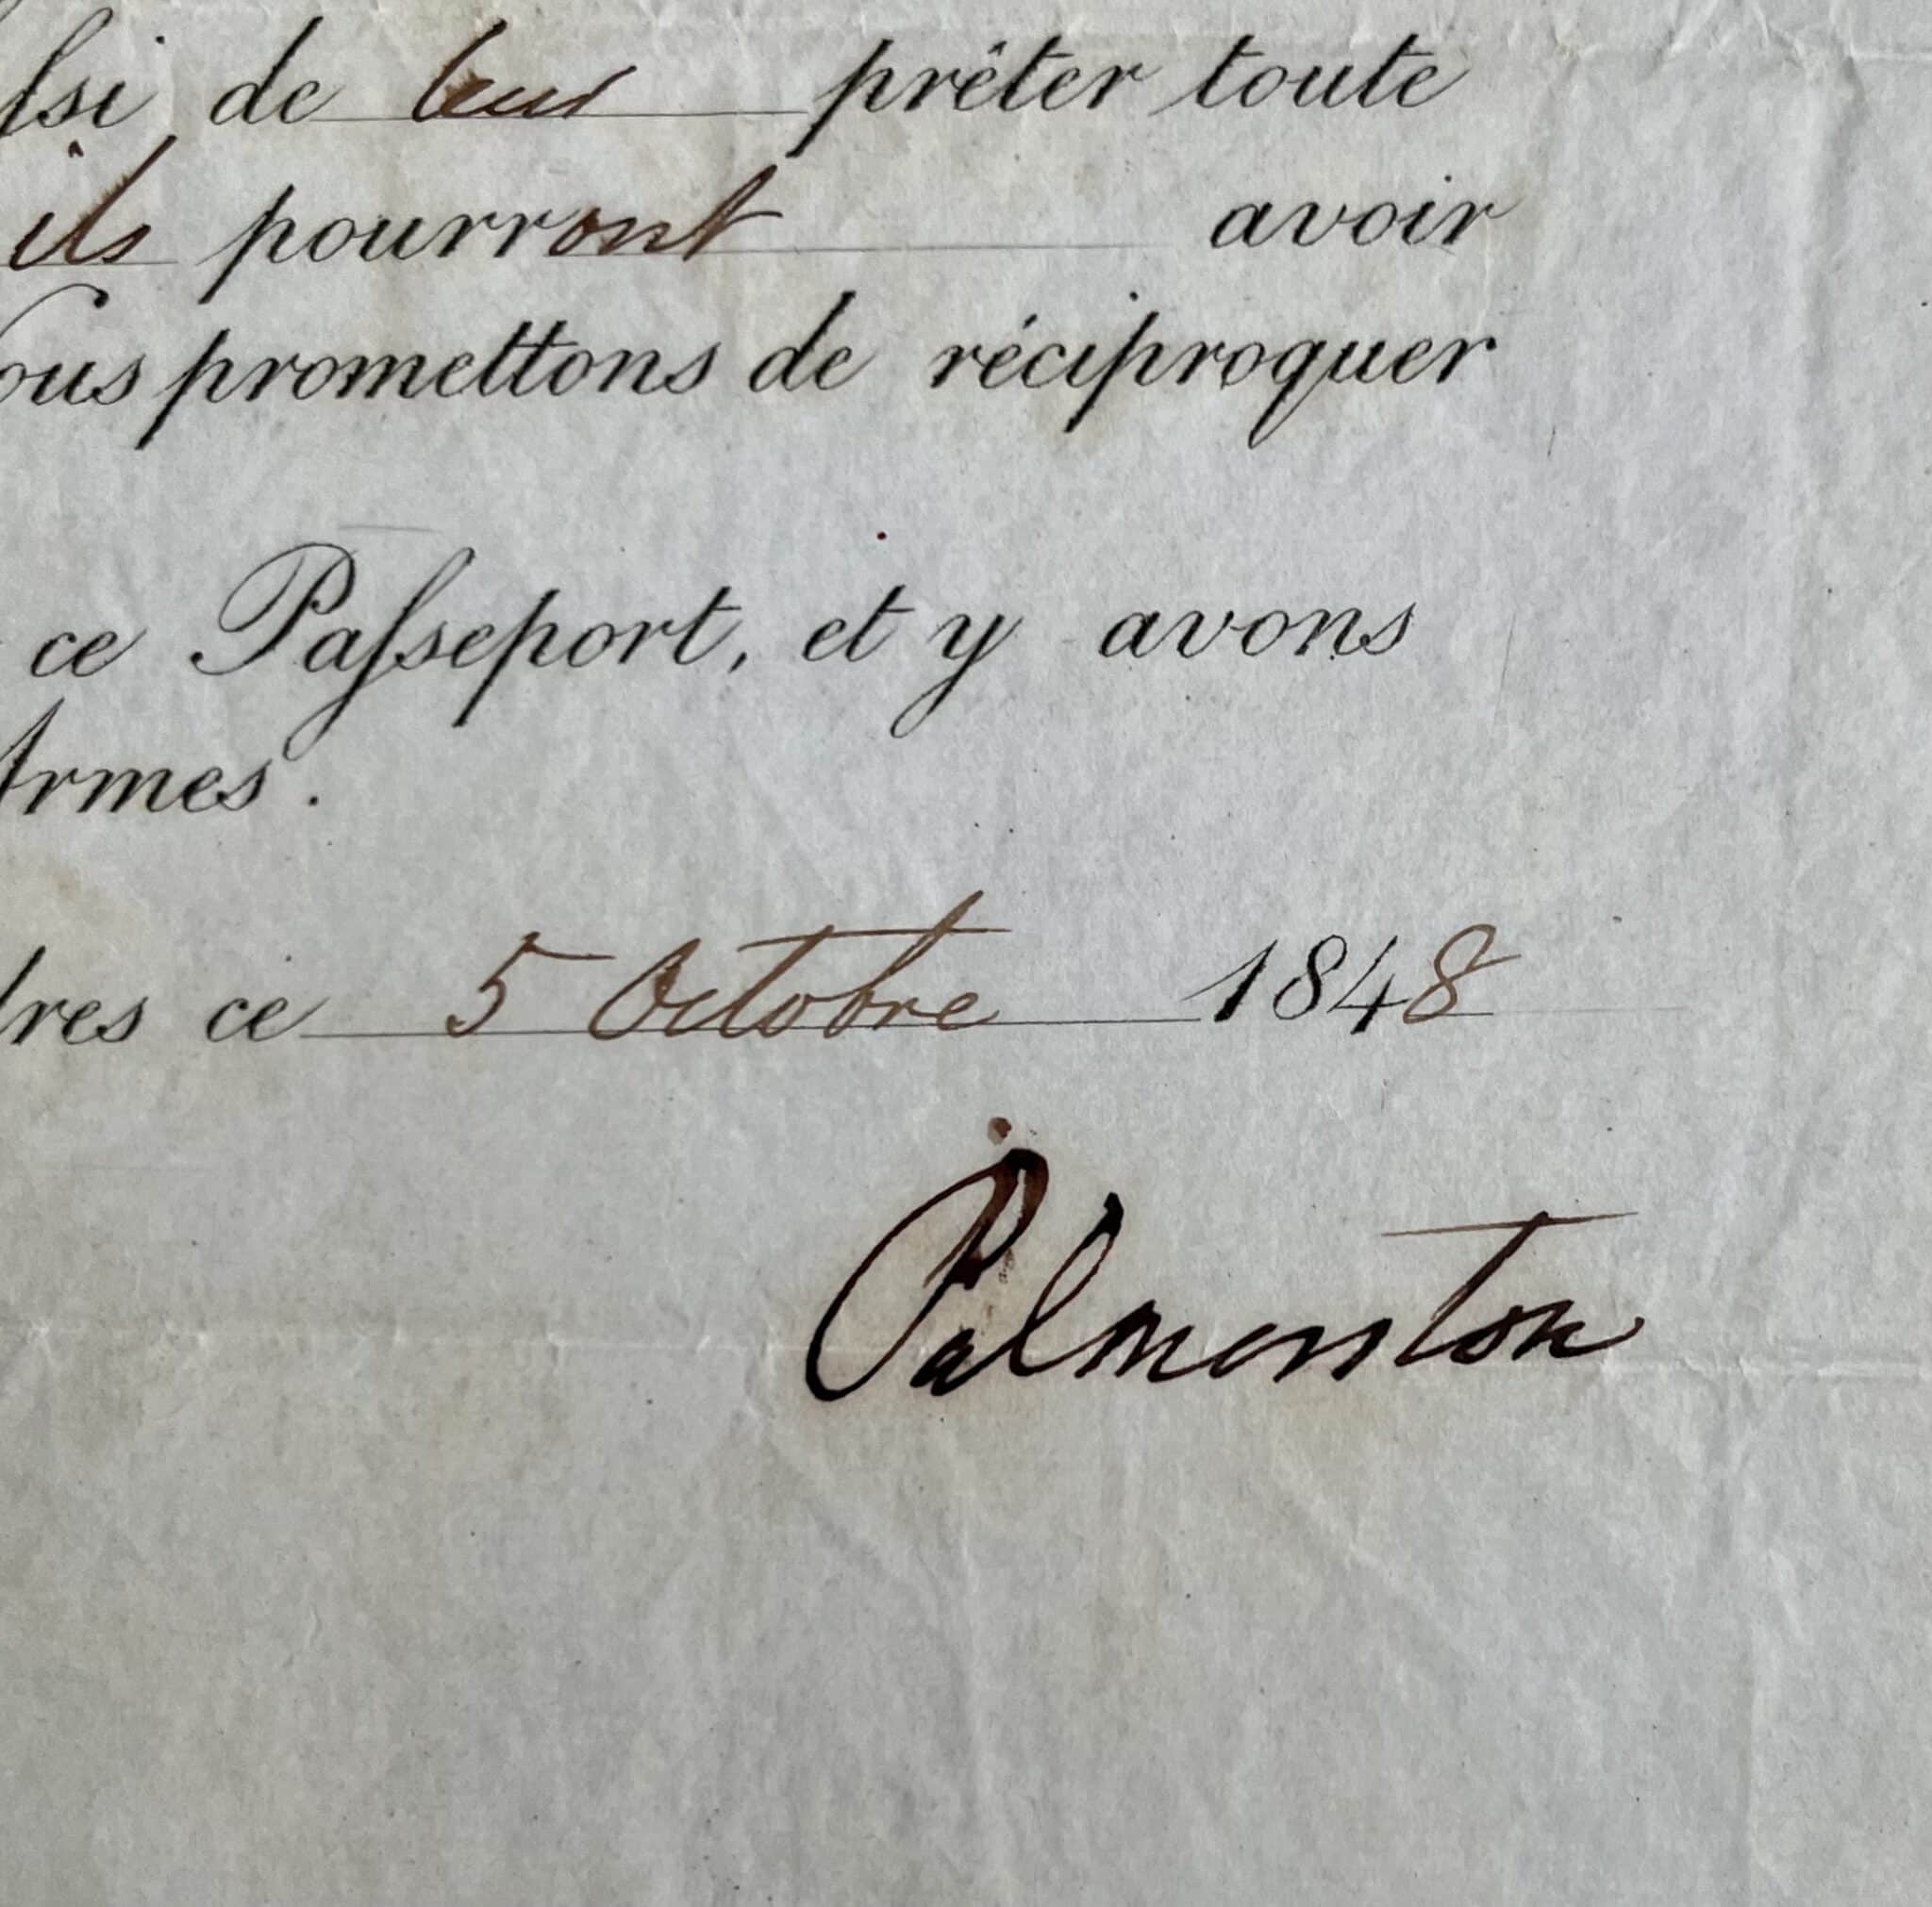 ſsi de leur prêter toute
ils pourront avoir
ous promettons de réciproquer
ce Paſseport, et y avons
Armes.
dres ce 5 Octobre 1848
Palmerston